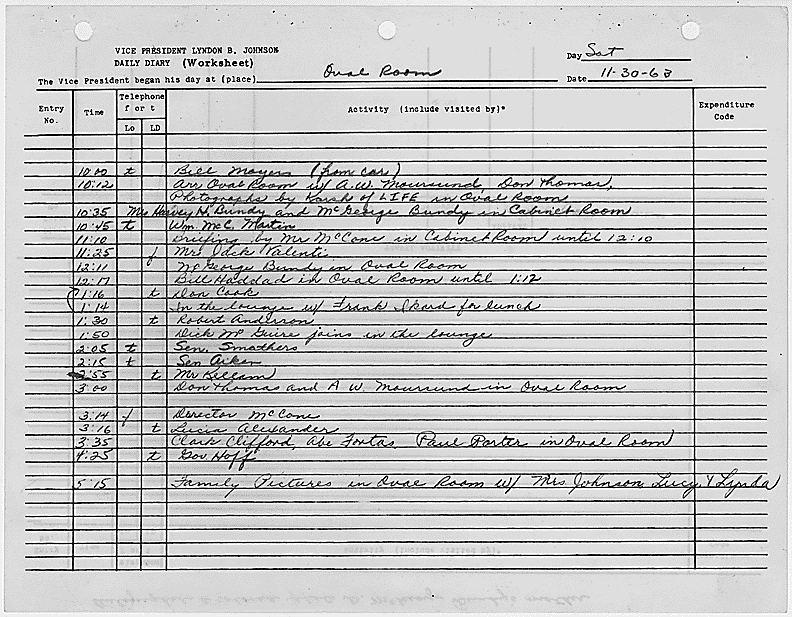 VICE PRESIDENT LYNDON B. JOHNSON
DAILY DIARY (Worksheet)
Day Sat
The Vice President began his day at (place) Oval Room
Date 11-30-63
Entry No. Time Telephone f or t Lo LD Activity (include visited by)* Expenditure Code
10:00 t Bill Moyers (from car)
10:12 Arr Oval Room w/ A.W. Moursund, Don Thomas,
Photographs by Karsh of LIFE in Oval Room
10:35 Mrs Harvey H. Bundy and McGeorge Bundy in Cabinet Room
10:45 t Wm. McC. Martin
11:10 briefing by Mr McCone in Cabinet Room until 12:10
11:25 f Mrs Jack Valenti
12:11 McGeorge Bundy in Oval Room
12:17 Bill Haddad in Oval Room until 1:12
1:16 t Don Cook
1:14 In the lounge w/ Frank Ikard for lunch
1:30 t Robert Anderson
1:50 Dick McGuire joins in the lounge
2:05 t Sen. Smathers
2:15 t Sen Aiken
2:55 t Mr Kellam
3:00 Don Thomas and A W. Moursund in Oval Room
3:14 f Director McCone
3:16 t Lucia Alexander
3:35 Clark Clifford, Abe Fortas, Paul Porter in Oval Room
4:25 t Gov Hoff
5:15 Family Pictures in Oval Room w/ Mrs Johnson, Lucy, & Lynda